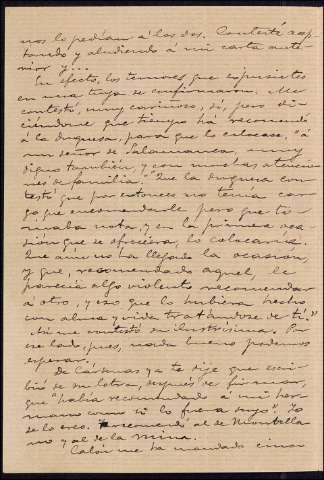 nos lo pedían á los dos. Contesté acep-
tando y aludiendo á mi carta ante-
rior y...
En efecto, los temores que expusiste
en una tuya se confirmaron. Me
contestó, muy cariñoso, sí, pero di-
ciéndome que tiempo ha recomendó
á la duquesa, para que lo colocase, "á
un señor de Salamanca, muy
digno también, y con muchas atencio-
nes de familia." Que la duquesa con-
testó que por entonces no tenía car-
go que encomendarle pero que to-
maba nota, y en la primera oca-
sión que se ofreciera, lo colocaría.
Que aún no ha llegado la ocasión,
y que, recomendado aquel, le
parecía algo violento recomendar
á otro, y eso que lo hubiera hecho
con alma y vida tratándose de ti."
Así me contestó su ilustrísima. Por
ese lado, pues, nada bueno podemos
esperar.
De Cárdenas ya te dije que escri-
bió de su letra, después de firmar,
que "había recomendado á mi her-
mano como si lo fuera suyo". Yo
se lo creo. recomendó al de Montella-
no y al de la Mina.
Calón me ha mandado cinco